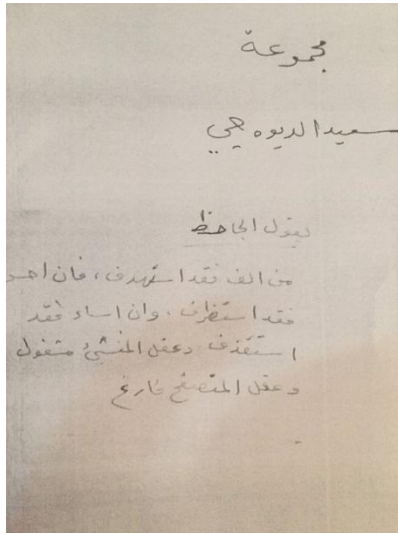 مجموعة
سعيد الديوه جي
يقول الجاحظ
من الف فقد استهدف، فان احسـ
فقد استظرف، وان اساء فقد
استقذف وعقل المنشئ مشغول
وعقل المتصفح فارغ